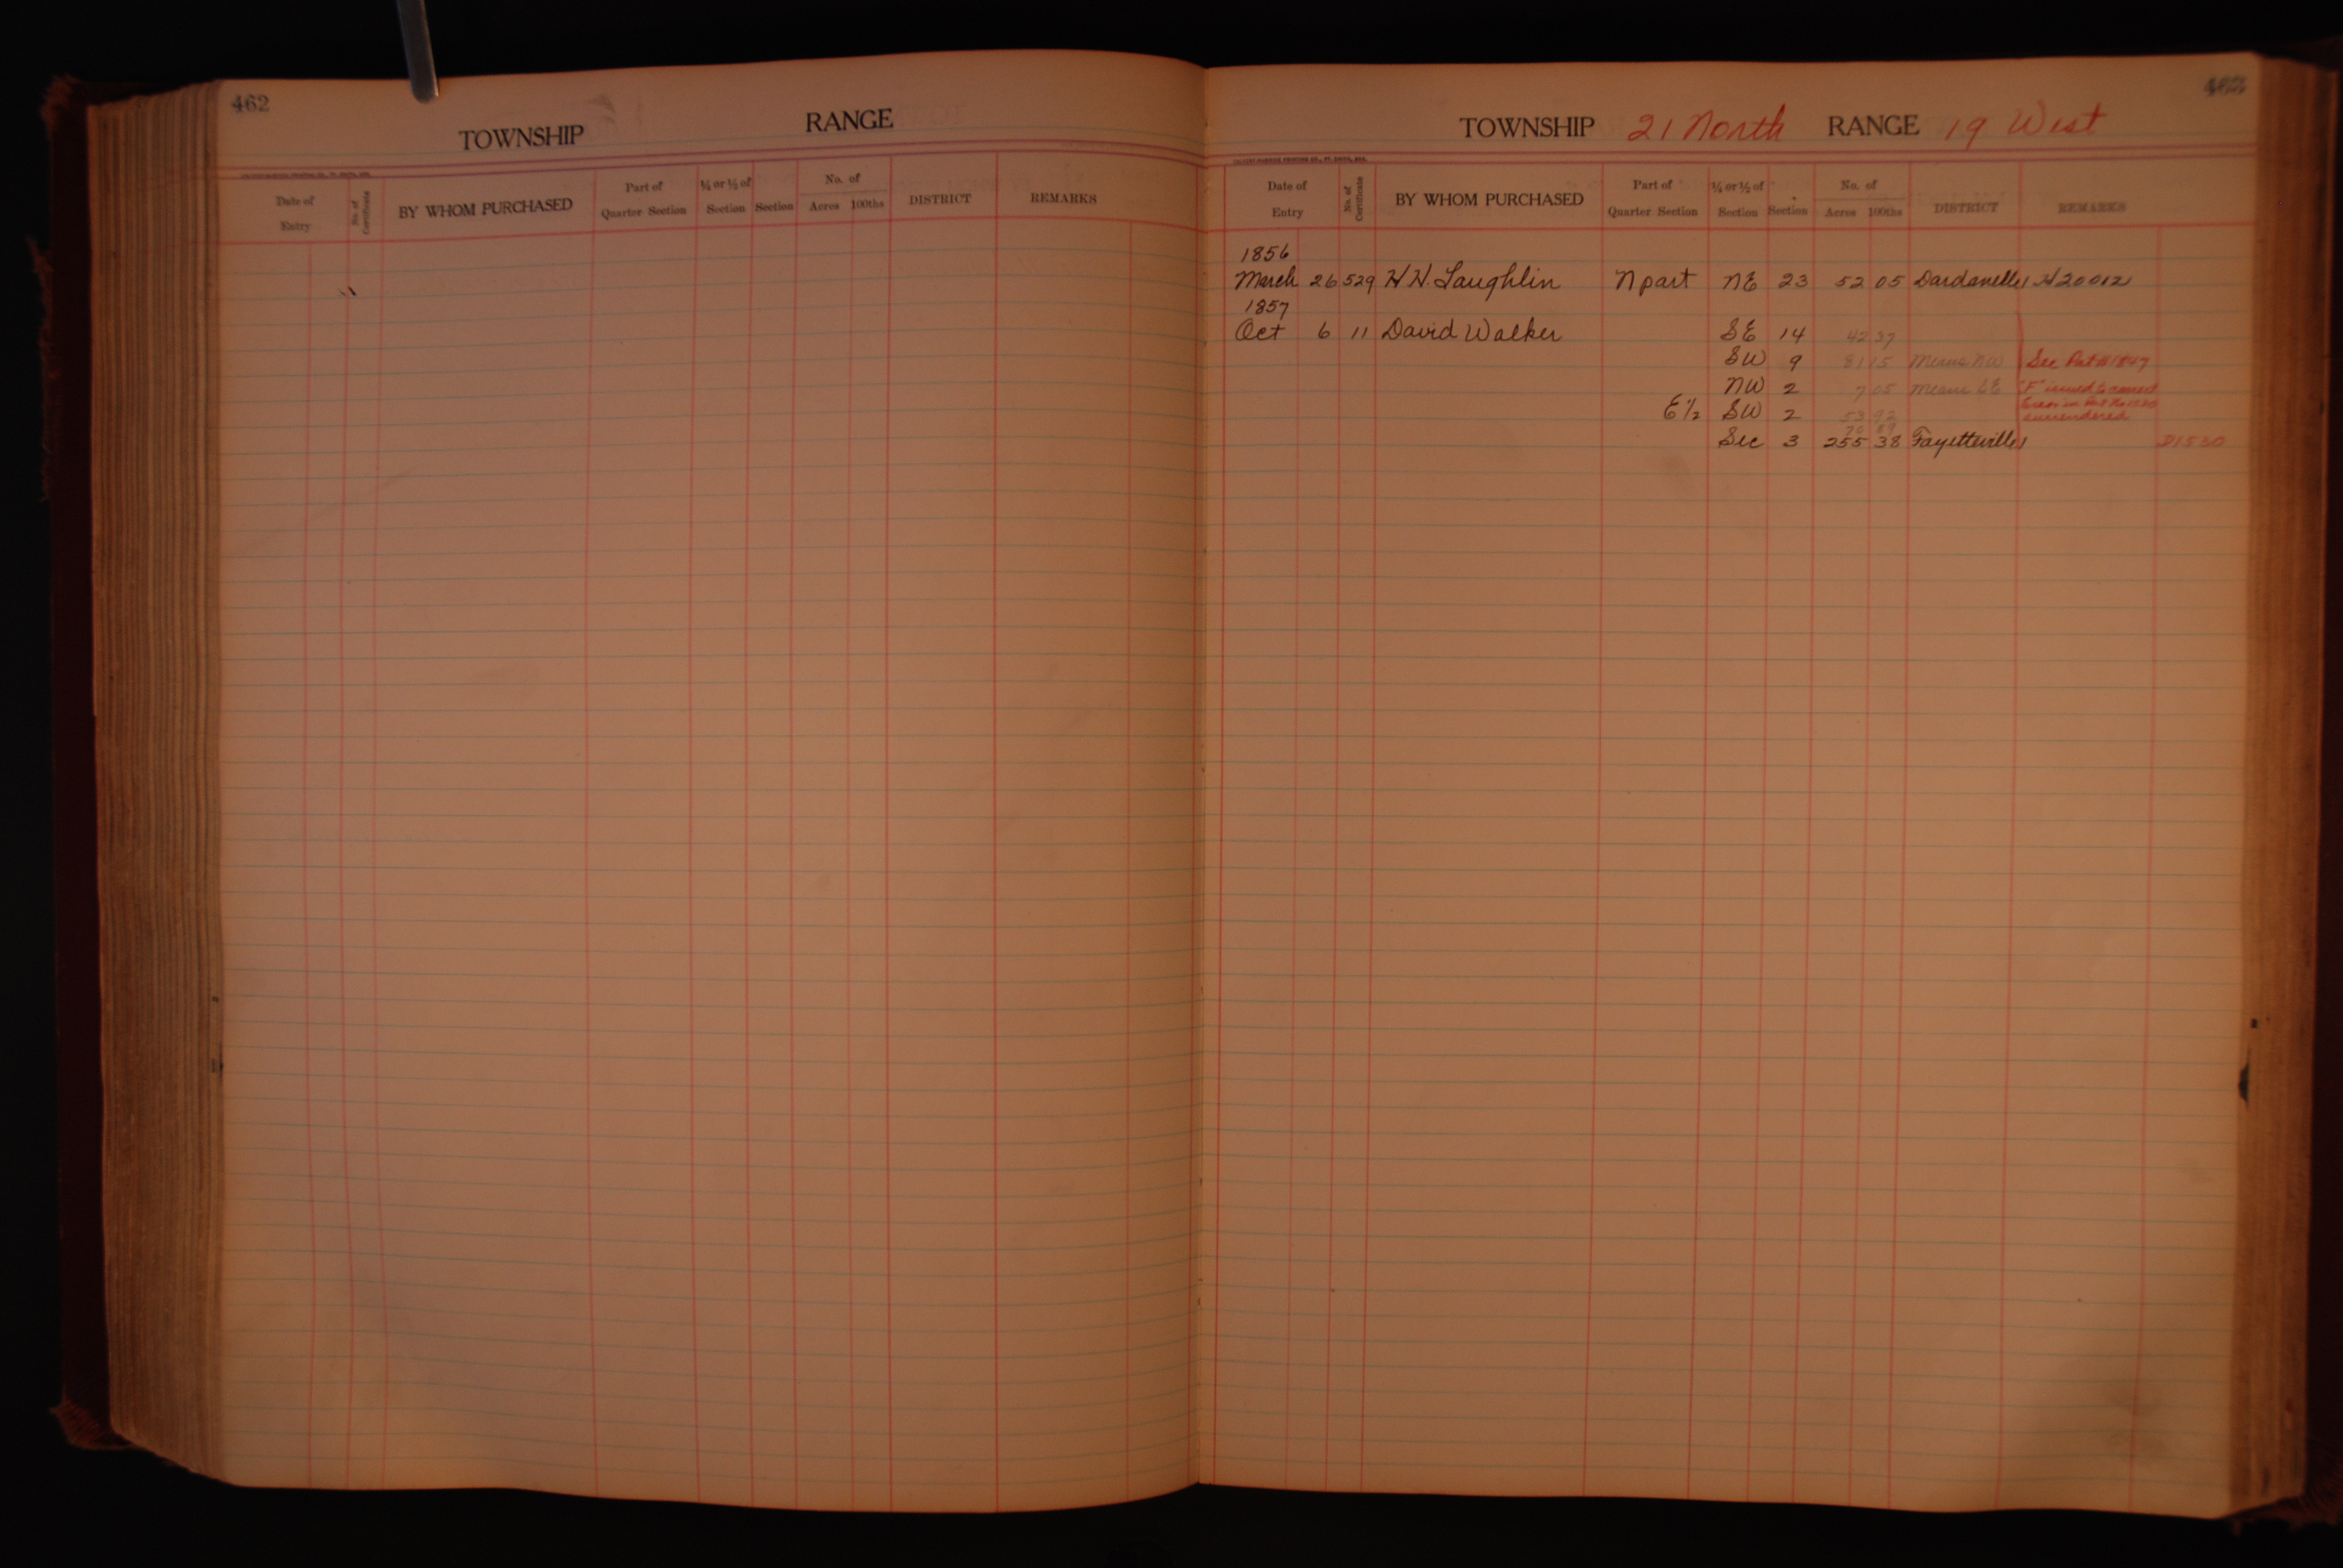 462
TOWNSHIP RANGE
Date of Entry No. of Certificate BY WHOM PURCHASED Part of Quarter Section ¼ or ½ of Section Section No. of Acres 100ths DISTRICT REMARKS
463
TOWNSHIP 21 North RANGE 19 West
Date of Entry No. of Certificate BY WHOM PURCHASED Part of Quarter Section ¼ or ½ of Section Section No. of Acres 100ths DISTRICT REMARKS
1856
March 26 529 H N. Laughlin N part NE 23 52 05 Dardanelle
1857
Oct 6 11 David Walker SE 14 42 37
SW 9 81 15 Means NW See Pat 1847
NW 2 7 05 Means SE "F" issued to correct
Error in Pat No 1530
E ½ SW 2 53 92 surrendered
70 89
Sec 3 255 38 Fayetteville D1530